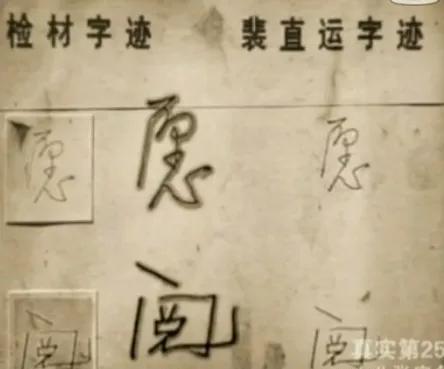 检材字迹 裴直运字迹
愿 愿 愿
阅 阅 阅
真实第25